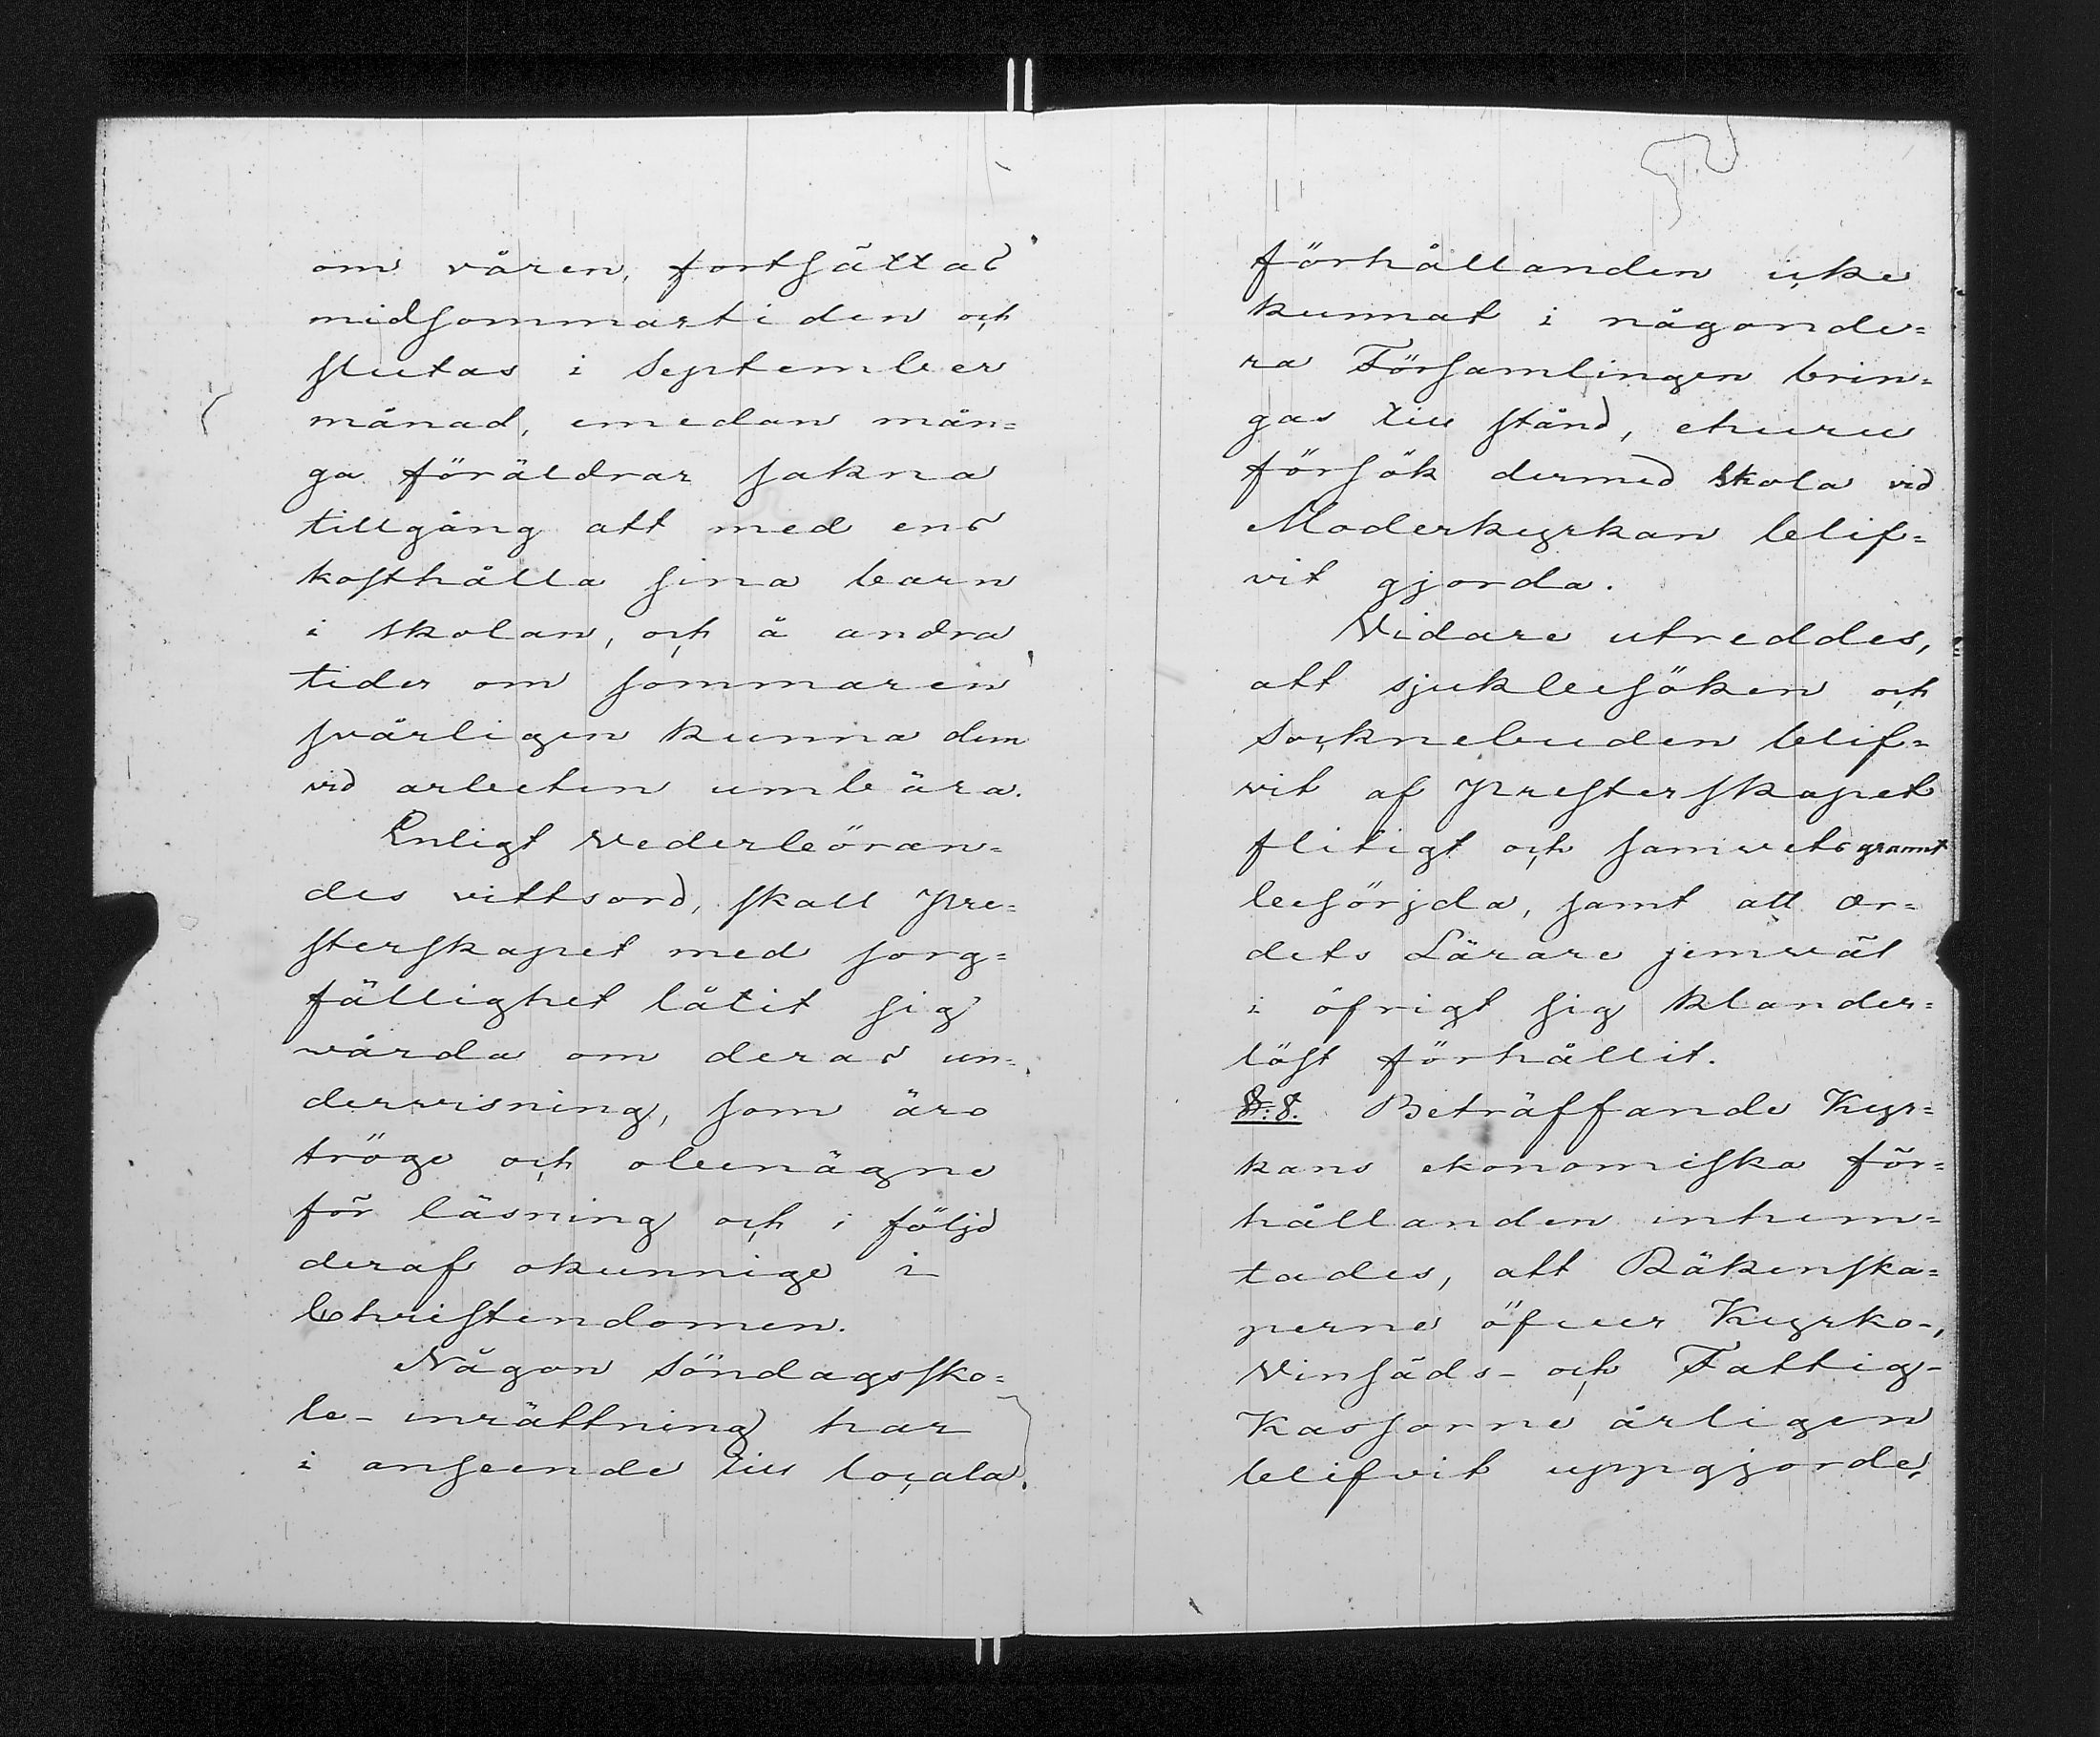 om våren, fortsättas
midsommartiden och
slutas i September
månad, emedan mån=
ga föräldrar sakna
tillgång att med ens
kosthålla sina barn
i skolan, och å andra
tider om sommaren
svårligen kunna dem
vid arbeten umbära.
Enligt vederböran=
des vittsord, skall Pre=
sterskapet med sorg=
fällighet låtit sig
vårda om deras un=
dervisning, som äro
tröge och obenägne
för läsning och i följd
deraf okunnige i
Christendomen.
Någon Söndagssko=
le-inrättning har
i anseende till locala
förhållanden icke
kunnat i någonde=
ra Församlingen brin=
gas till stånd, ehuru
försök dermed skola vid
Moderkyrkan blif=
vit gjorda.
Vidare utreddes,
att sjukbesöken och
Socknebuden blif=
vit af Presterskapet
flitigt och samvetsgrannt
besörjda, samt att Or=
dets Lärare jemväl
i öfrigt sig klander=
löst förhållit.
§. 8. Beträffande Kyr=
kans ekonomiska för=
hållanden inhem=
tades, att Räkenska=
perne öfver Kyrko-,
Vinsäds- och Fattig-
Kassorne årligen
blifvit uppgjorde,